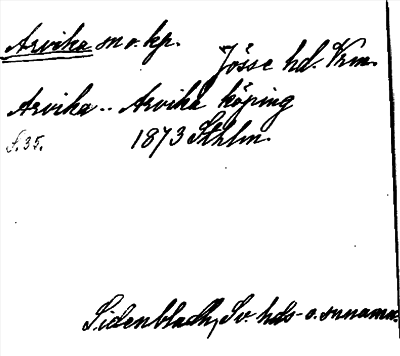 Arvika sn o. kp.
Jösse hd. Vrm.
Arvika.. Arvika köping
s. 35. 1873 Sthlm.
Sidenbladh, Sv. hds- o. snnamn.